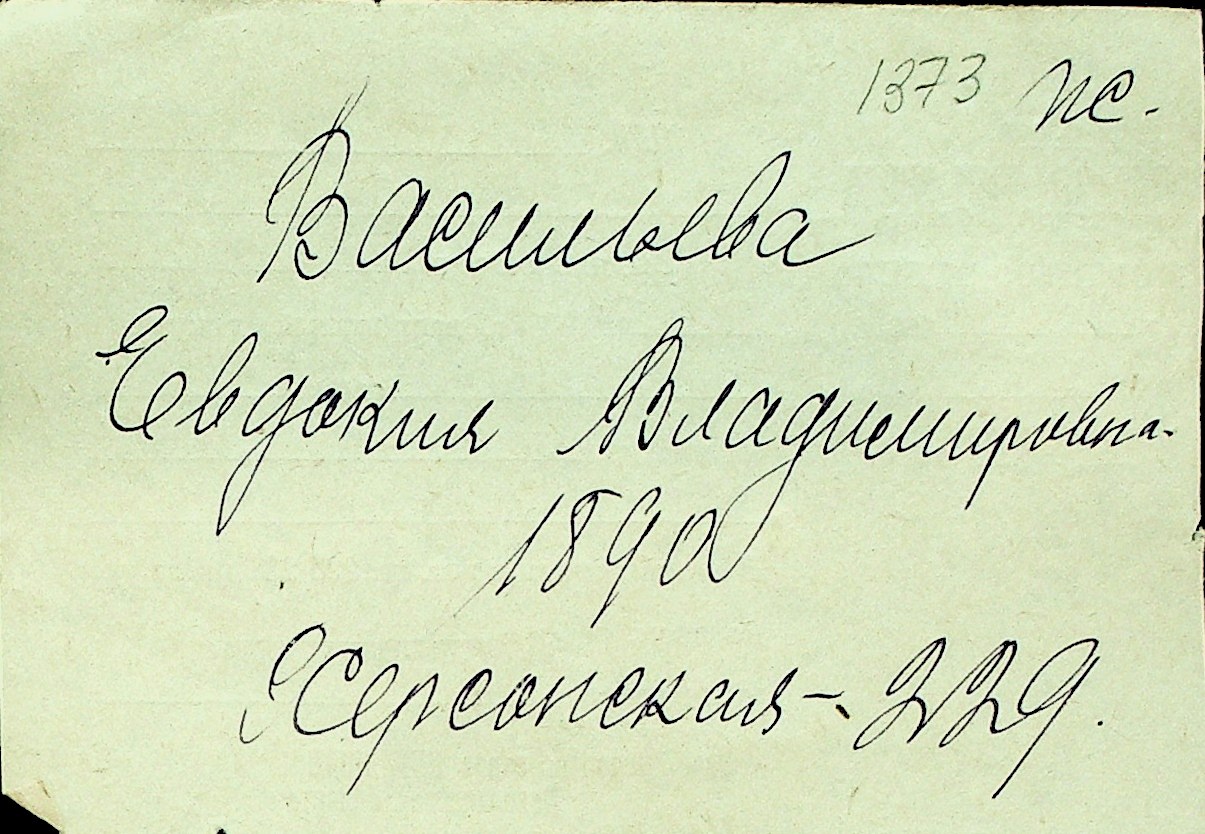 1373 пс.
Васильева
Евдокия Владимировна.
1890
Херсонская - 229.